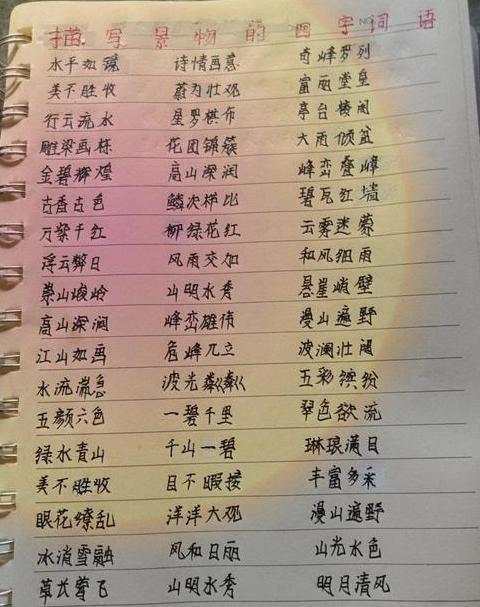 描写景物的四字词语
水平如镜 诗情画意 奇峰罗列
美不胜收 蔚为壮观 富丽堂皇
行云流水 星罗棋布 亭台楼阁
雕梁画栋 花团锦簇 大雨倾盆
金碧辉煌 高山深涧 峰峦叠嶂
古香古色 鳞次栉比 碧瓦红墙
万紫千红 柳绿花红 云雾迷蒙
浮云蔽日 风雨交加 和风细雨
崇山峻岭 山明水秀 悬崖峭壁
高山深涧 峰峦雄伟 漫山遍野
江山如画 危峰兀立 波澜壮阔
水流湍急 波光粼粼 五彩缤纷
五颜六色 一碧千里 翠色欲流
绿水青山 千山一碧 琳琅满目
美不胜收 目不暇接 丰富多采
眼花缭乱 洋洋大观 漫山遍野
冰消雪融 风和日丽 山光水色
草长莺飞 山明水秀 明月清风